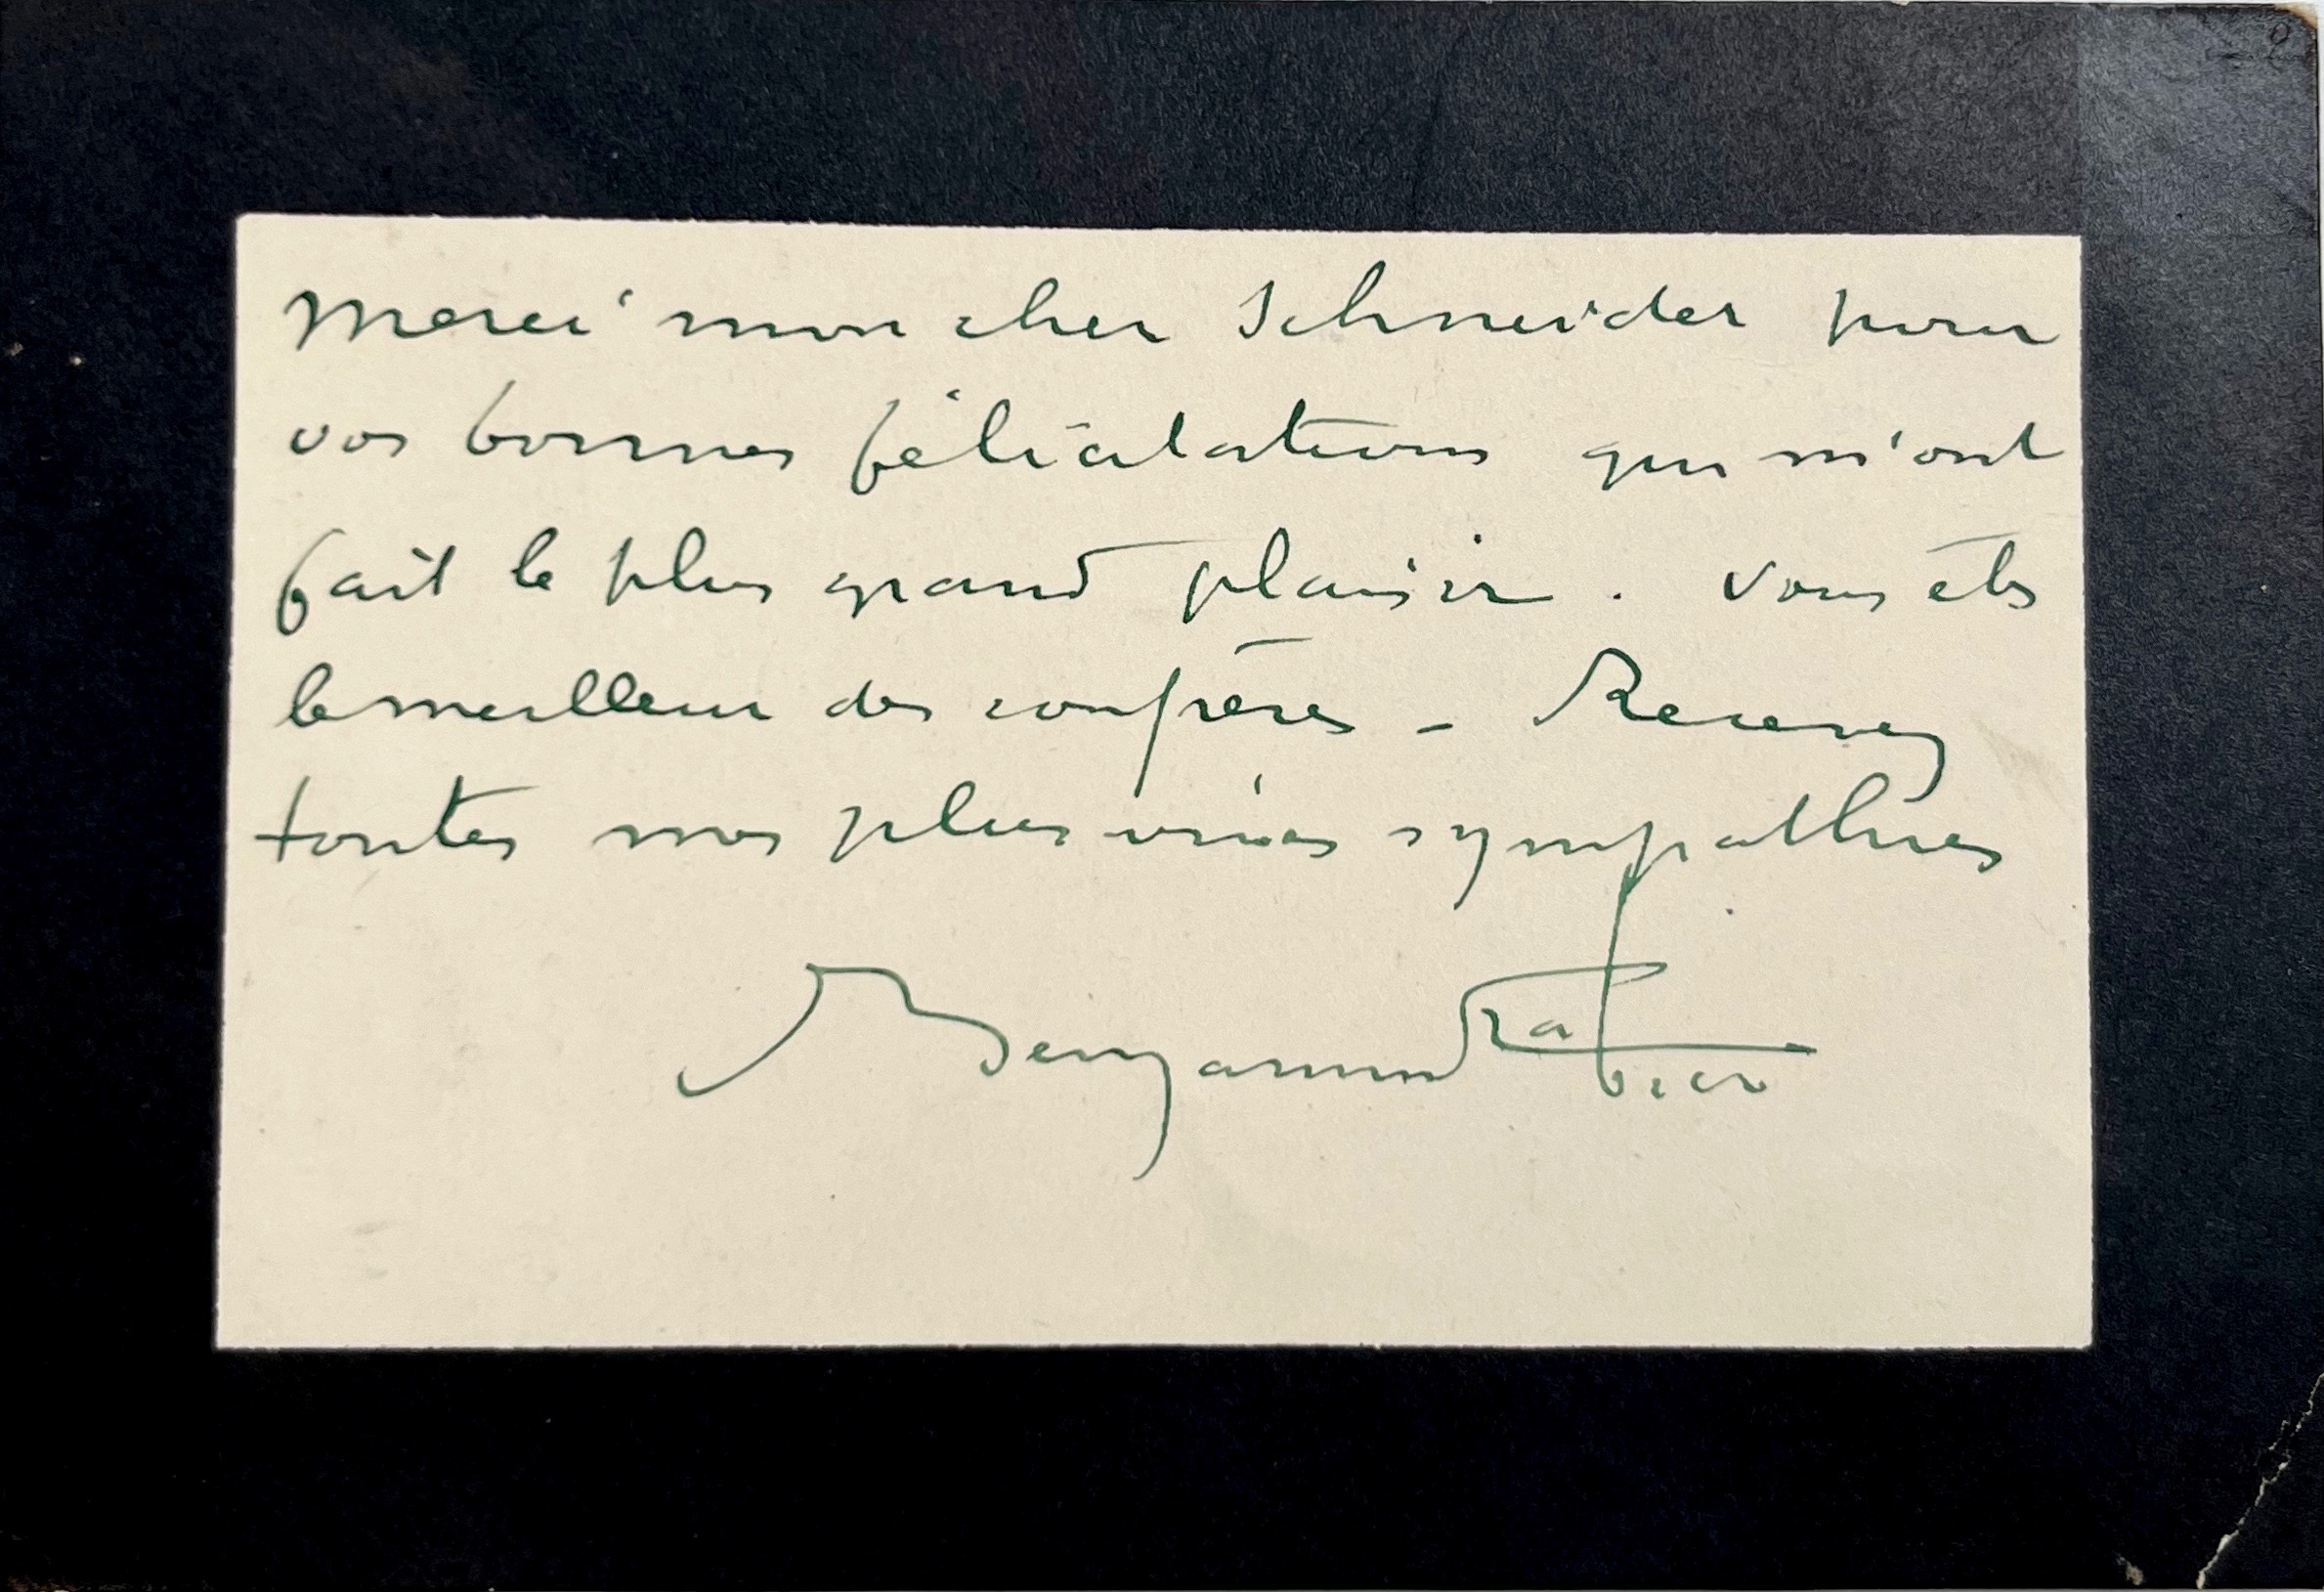 Merci mon cher Schneider pour
vos bonnes félicitations qui m'ont
fait le plus grand plaisir. Vous êtes
le meilleur des confrères - Recevez
toutes mes plus vives sympathies
Benjamin Rabier